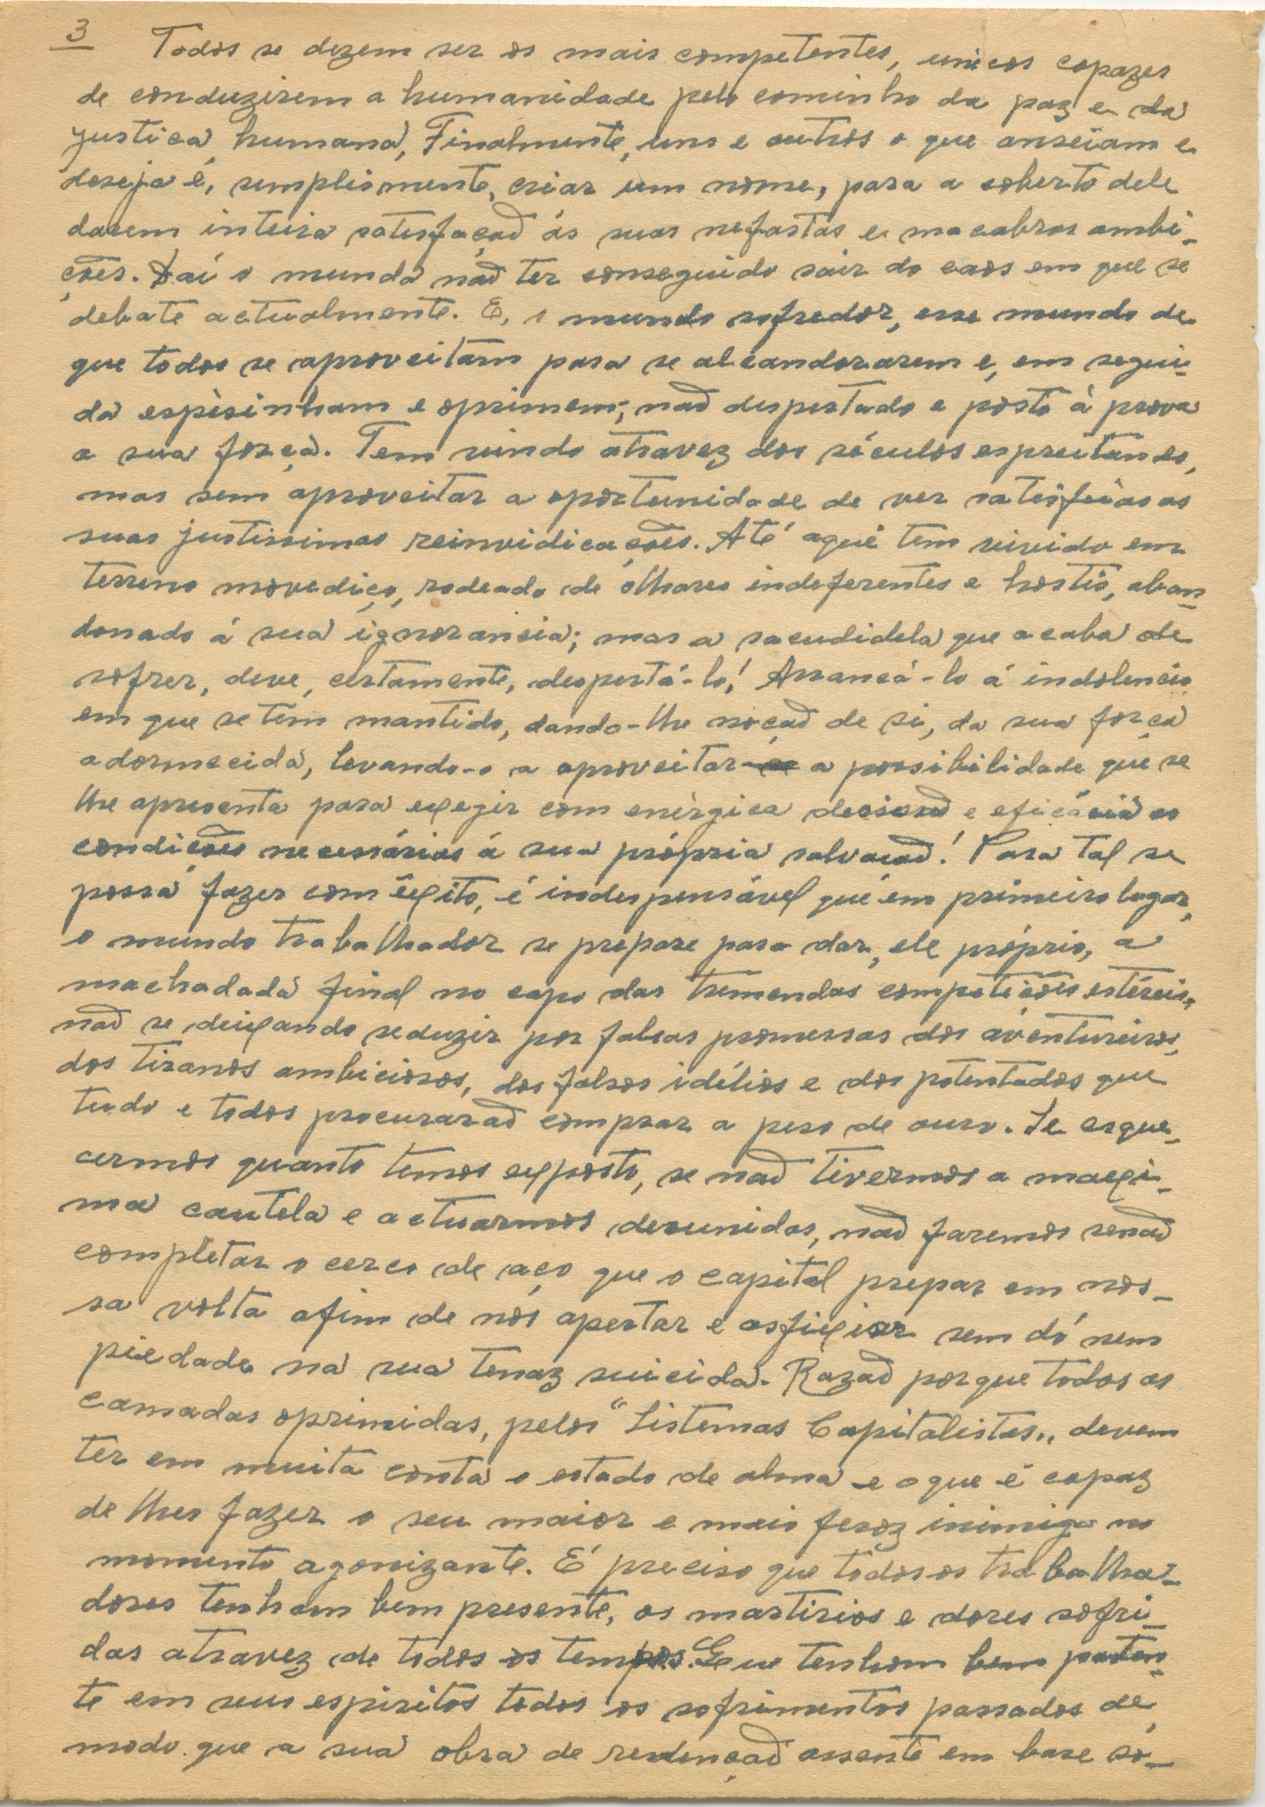 3
Todos se dizem ser os mais competentes, unicos capazes
de conduzirem a humanidade pelo caminho da paz e da
justiça humana, Finalmente, uns e outros o que anseiam e
deseja é, simplismente, criar um nome, para a coberto dele
darem inteira satisfação ás suas nefastas e macabras ambi-
ções. Daí o mundo não ter conseguido sair do caos em que se
debate actualmente. E, o mundo sofredor, esse mundo de
que todos se aproveitam para se alcandorarem e, em segui-
da espèsinham e oprimem; não despertado e posto á prova
a sua força. Tem vindo atravez dos séculos espreitando,
mas sem aproveitar a oportunidade de ver satisfeias as
suas justissimas reinvidicações. Até aqui tem vivido em
terreno movediço, rodeado de olhares indeferentes e hostis, aban-
donado á sua ignorancia; mas a sacudidela que acaba de
sofrer, deve, certamente, despertá-lo! Arrancá-lo á indolencia
em que se tem mantido, dando-lhe noção de si, da sua força
adormecida, levando-o a aproveitar a possibilidade que se
lhe apresenta para exegir com enérgica decisão e eficácia as
condições necessárias á sua própria salvação! Para tal se
possa fazer com êxito, é indespensável que em primeiro lugar,
o mundo trabalhador se prepare para dar, ele próprio, a
machadada final no capo das tremendas competições estéreis,
não se deixando seduzir por falsas promessas dos aventureiros,
dos tiranos ambiciosos, dos falsos idélios e dos potentados que
tudo e todos procurarão comprar a peso de ouro. Se esque-
cermos quanto temos exposto, se não tivermos a maxi-
ma cautela e actuarmos desunidos, não faremos senão
completar o cerco de aço que o capital prepar em nos-
sa volta afim de nós apertar e asfixiar sem dó nem
piedade na sua tenaz suicida. Razão porque todos as
camadas oprimidas, pelos "Sistemas Capitalistas,, devem
ter em muita conta o estado de alma e o que é capaz
de lhes fazer o seu maior e mais feroz inimigo no
momento agonizante. É preciso que todos os trabalha-
dores tenham bem presente, os martirios e dores sofri-
das atravez de todos os tempos. Que tenham bem paten-
te em seus espiritos todos os sofrimentos passados de
modo que a sua obra de redenção assente em base só-